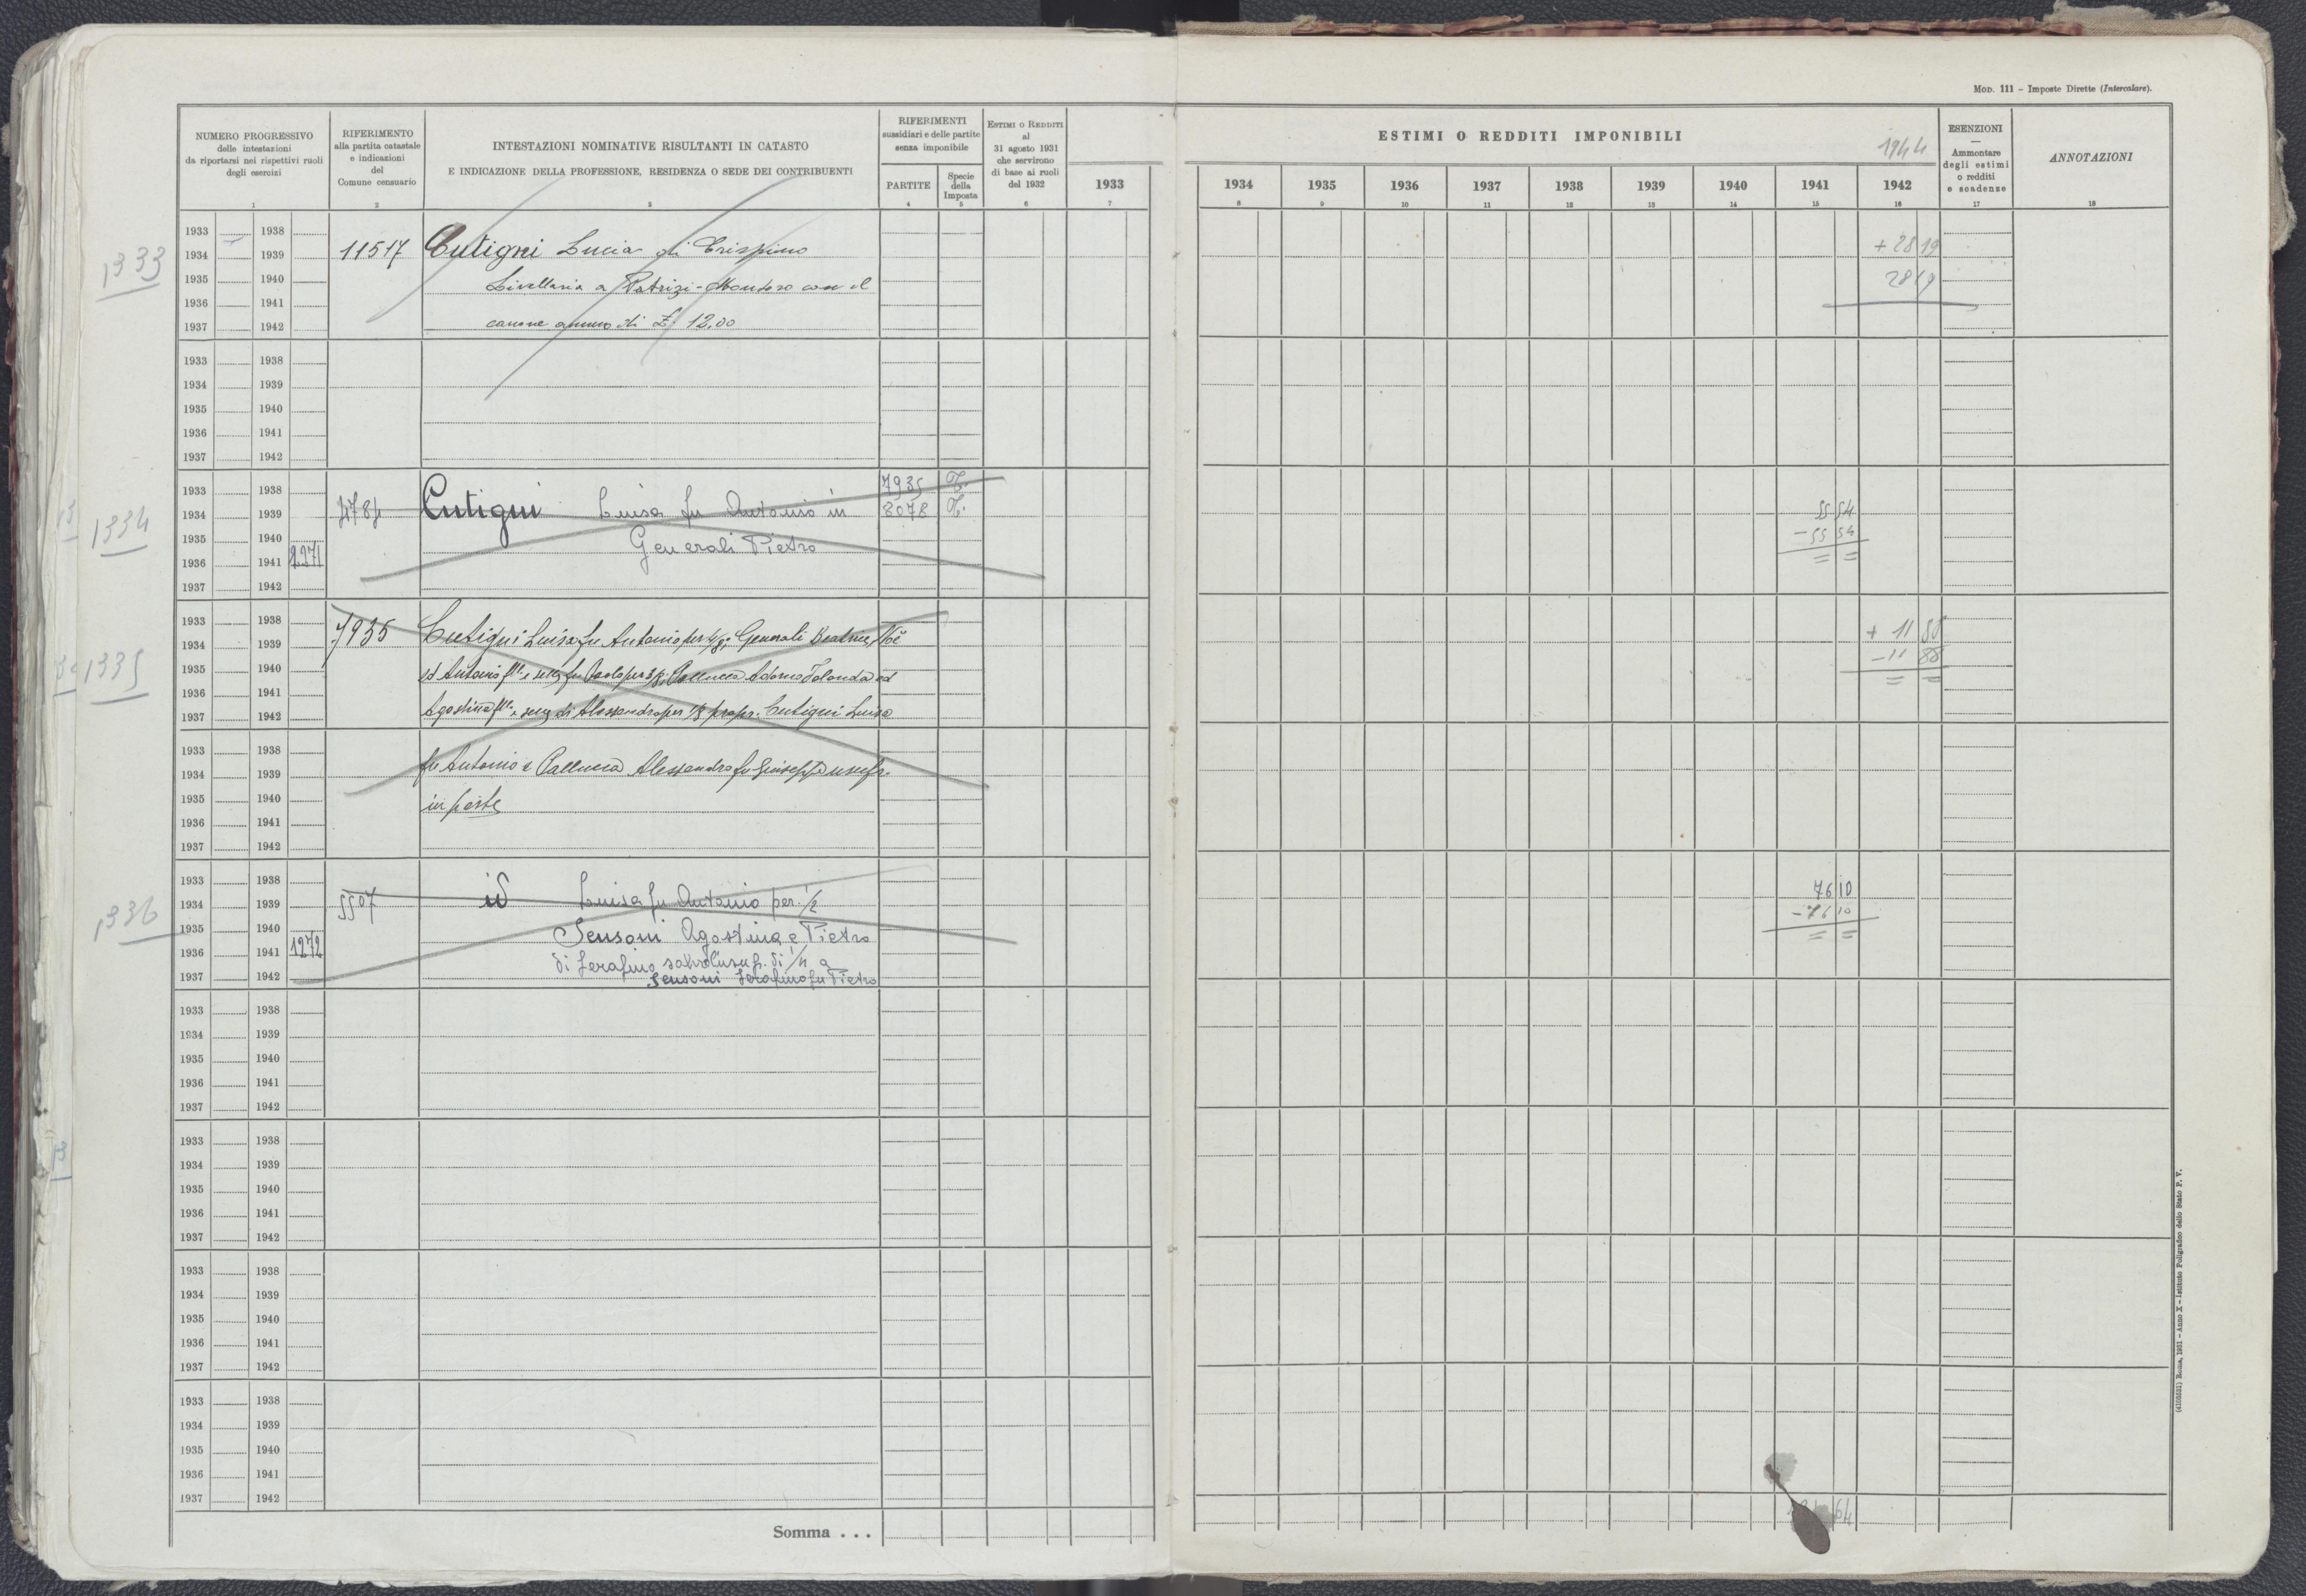 Mod. 111 – Imposte Dirette (Intercalare).
NUMERO PROGRESSIVO
delle intestazioni
da riportarsi nei rispettivi ruoli
degli esercizi
1
RIFERIMENTO
alla partita catastale
e indicazioni
del
Comune censuario
2
INTESTAZIONI NOMINATIVE RISULTANTI IN CATASTO
E INDICAZIONE DELLA PROFESSIONE, RESIDENZA O SEDE DEI CONTRIBUENTI
3
RIFERIMENTI
sussidiari e delle partite
senza imponibile
PARTITE
4
Specie
della
Imposta
5
Estimi o Redditi
al
31 agosto 1931
che servirono
di base ai ruoli
del 1932
6
1933
7
ESTIMI O REDDITI IMPONIBILI
1944
1934 1935 1936 1937 1938 1939 1940 1941 1942
8 9 10 11 12 13 14 15 16
ESENZIONI
—
Ammontare
degli estimi
o redditi
e scadenze
17
ANNOTAZIONI
18
1933 1938
1333 1934 1939 11517 Cutigni Lucia di Crispino + 28 19
1935 1940 Livellaria a Patrizi-Montoro con il 28 19
1936 1941
1937 1942 canone annuo di £ 12,00
1933 1938
1934 1939
1935 1940
1936 1941
1937 1942
1933 1938 7935 T.
1334 1934 1939 4784 Cutigni Luisa fu Antonio in 8078 T. 55 54
1935 1940 Generali Pietro – 55 54
1936 1941 1271 = =
1937 1942
1933 1938
1934 1939 7935 Cutigni Luisa fu Antonio per 4/8; Generali Beatrice, + 11 88
1335 1935 1940 ed Antonio f.lli e sor. fu Paolo per 3/8; Pallucca Adamo Jolanda ed – 11 88
1936 1941 = =
1937 1942 Agostina f.lli e sor. di Alessandro per 1/8 propr. Cutigni Luisa
1933 1938
1934 1939 fu Antonio e Pallucca Alessandro fu Giuseppe usufr.
1935 1940 in parte
1936 1941
1937 1942
1933 1938 76 10
1336 1934 1939 5507 id Luisa fu Antonio per 1/2 – 76 10
1935 1940 Sensoni Agostina e Pietro = =
1936 1941 1272 di Serafino salvo l'usuf. di 1/4 a
1937 1942 Sensoni Serafino fu Pietro
1933 1938
1934 1939
1935 1940
1936 1941
1937 1942
1933 1938
1934 1939
1935 1940
1936 1941
1937 1942
1933 1938
1934 1939
1935 1940
1936 1941
1937 1942
1933 1938
1934 1939
1935 1940
1936 1941
1937 1942
Somma . . . 64
(4103531) Roma, 1931 – Anno X – Istituto Poligrafico dello Stato P. V.